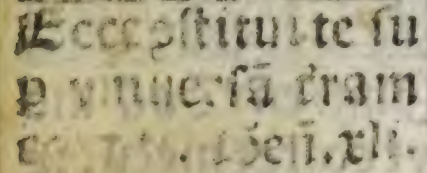 Ecce ꝯstitui te su
ꝑ vniuersā t̄ram
Geñ.xli.